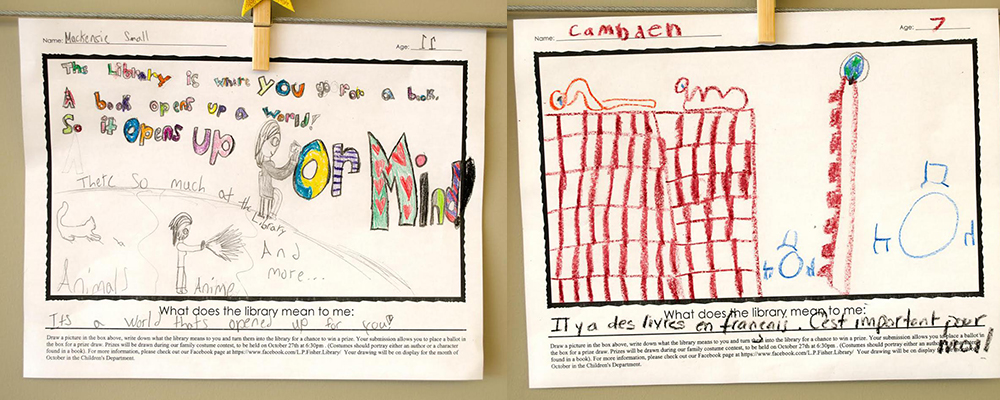 Name: Mackenzie Small
Age: 11
The Library is where YOU go for a book.
A book opens up a World!
So it Opens Up
Or Mind
There So much at the Library
And
more...
Animals
Anime
What does the library mean to me:
Its a world thats opened up for you!
Draw a picture in the box above, write down what the library means to you and turn them into the library for a chance to win a prize. Your submission allows you to place a ballot in
the box for a prize draw. Prizes will be drawn during our family costume contest, to be held on October 27th at 6:30pm . (Costumes should portray either an author or a character
found in a book). For more information, please check out our Facebook page at https://www.facebook.com/L.P.Fisher.Library/ Your drawing will be on display for the month of
October in the Children's Department.
Name: Cambden
Age: 7
What does the library mean to me:
Il y a des livres en francais. C'est important pour
moi
Draw a picture in the box above, write down what the library means to you and turn into the library for a chance to win a prize. Your submission allows you to place a ballot in
the box for a prize draw. Prizes will be drawn during our family costume contest, to be held on October 27th at 6:30pm . (Costumes should portray either an
found in a book). For more information, please check out our Facebook page at https://www.facebook.com/L.P.Fisher.Library/ Your drawing will be on display
October in the Children's Department.